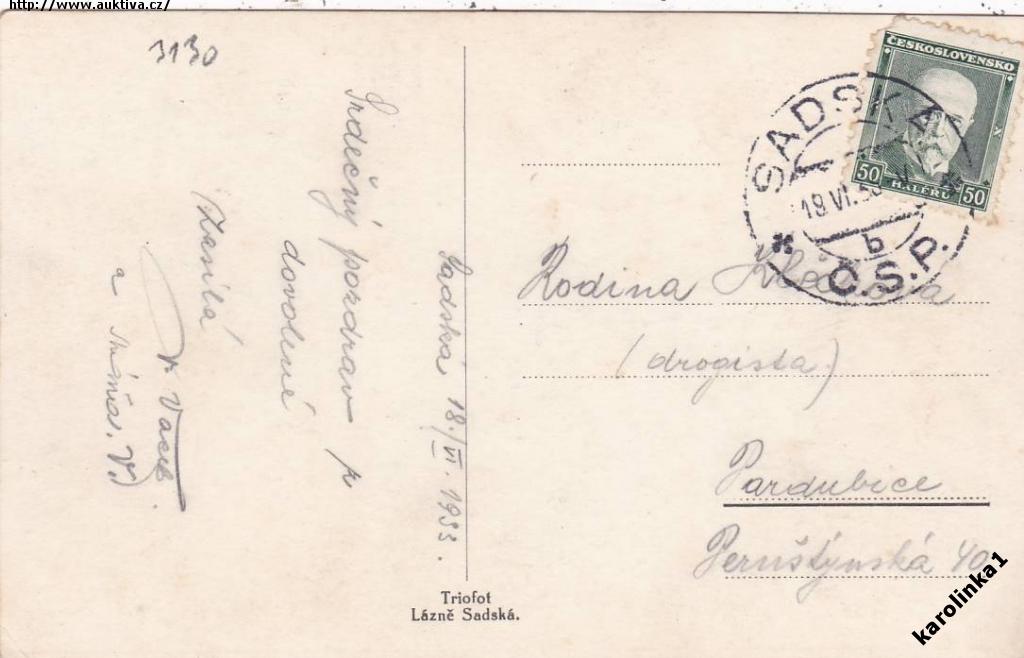 http://www.auktiva.cz/
3130
Sadská 18./VI. 1933.
Srdečný pozdrav z
dovolené
Zasílá
a Máňa. V.
Triofot
Lázně Sadská.
ČESKOSLOVENSKO
50 HALÉŘŮ 50
SADSKÁ
19 VI. 33
b
Č.S.P.
Rodina
(drogista)
Pardubice
Pernštýnská 40
karolinka1